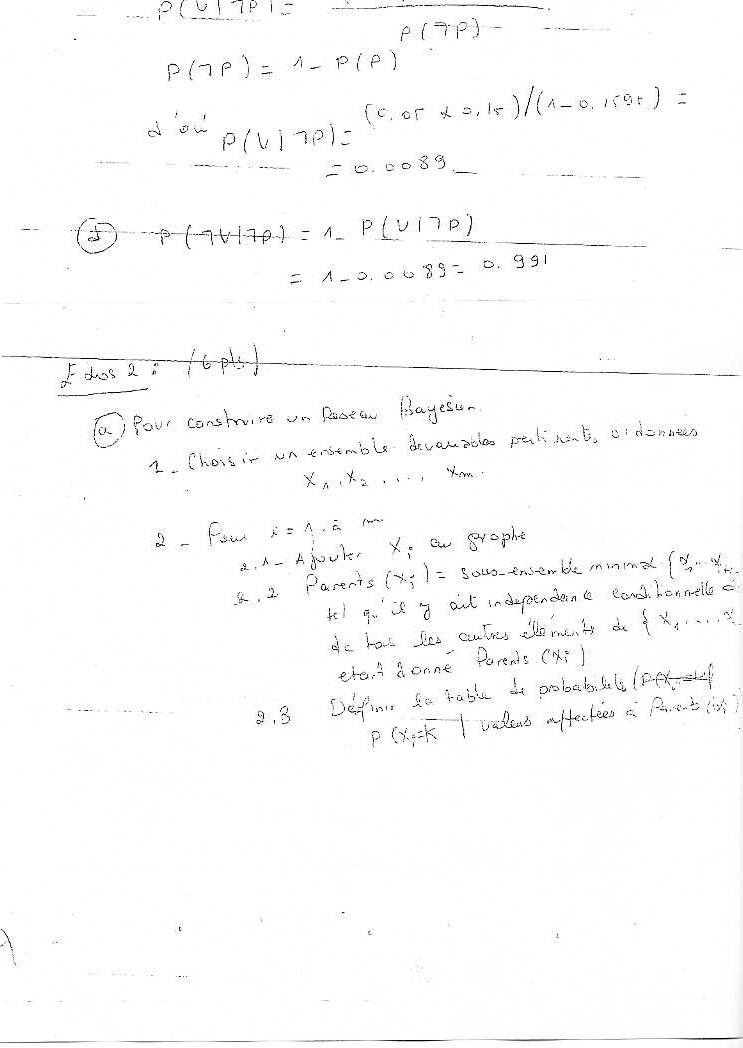 P(V|¬P) =
P(¬P)
P(¬P) = 1 - P(P)
d'où P(V|¬P) = (0.05 x 0,15)/(1-0.1595) =
= 0.0089
P(¬V|¬P) = 1 - P(V|¬P)
= 1 - 0.0089 = 0.991
Exos 2 : (6 pts)
(a) Pour construire un Reseau Bayesien.
1 - Choisir un ensemble de variables pertinents, ordonnées
X1, X2, ..., Xm.
2 - Pour i = 1 à m
2.1 - Ajouter Xi au graphe
2.2 Parents (Xi) = sous-ensemble minimal {X1...
tel qu'il y ait independance conditionnelle
de tous les autres éléments de { X1....
etant donné Parents (Xi)
2.3 Définir la table de probabilités
P(Xi=K | valeurs affectées à Parents (Xi)